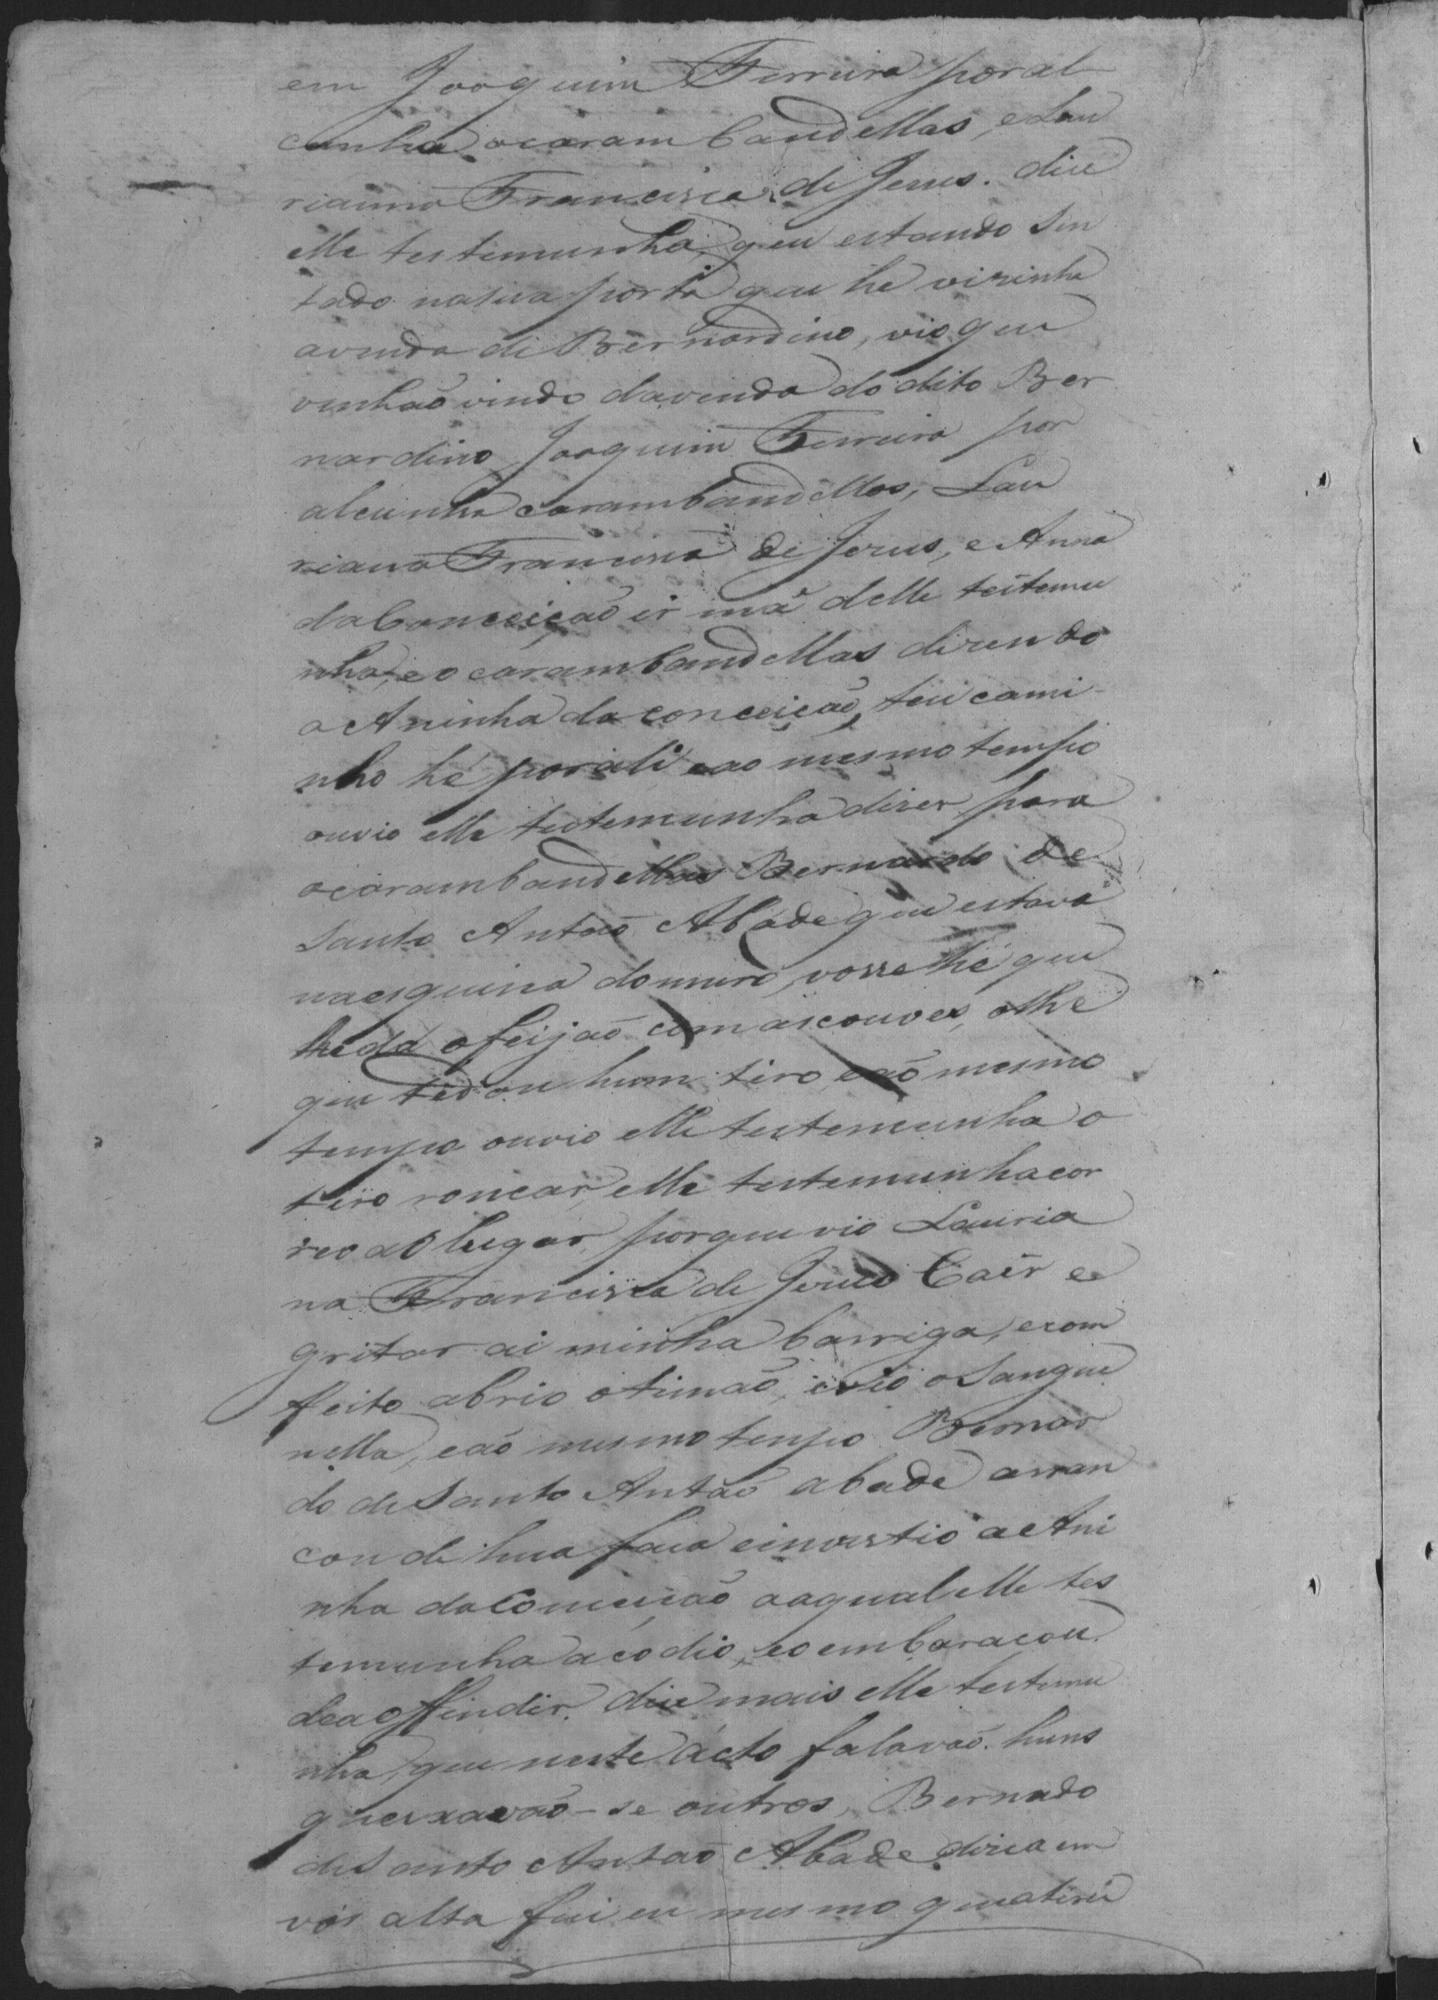 em Joaquim Ferreira por al
cunha ocarambandellas, e Lau
rianna Francisca de Jesus. dice
elle testemunha, que estando sen
tado nasua porta que he vizinha
avenda de Bernardino, vio que
vinhaõ vindo davenda do dito Ber
nardino Joaquim Ferreira por
alcunha carambandellas, Lau
riana Francisca de Jezus, e Anna
daConceiçaõ irmã delle testemu
nha, e o carambandellas dizendo
a Aninha da conceiçaõ, teu cami-
nho hé por ali eao mesmo tempo
ouvio elle testemunha dizer para
ocarambandellas Bernardo de
Santo Antaõ Abade que estava
naesquina domuro, vosse hé que
lhe dá o feijaõ com as couves, olhe
que te dou hum tiro, eaõ mesmo
tempo ouvio elle testemunha o
tiro roncar, elle testemunha cor
reo ao lugar, porque vio Lauria
na Francisca de Jezus Cair e
gritar ai minha barriga, ecom
feito abrio otimaõ, evio osangue
nella, eaõ mesmo tempo Bernar
do de Santo Antaõ abade arran
cou de hua faca einvestio a Ani
nha daConceiçaõ aaqual elle tes
temunha acodio, eo embaraçou
dea offender. dice mais elle testemu
nha, que neste ácto falavaõ huns
queixavaõ-se outros, Bernado
de Santo Antaõ Abade dizia em
vós alta fui eu mesmo que atirei